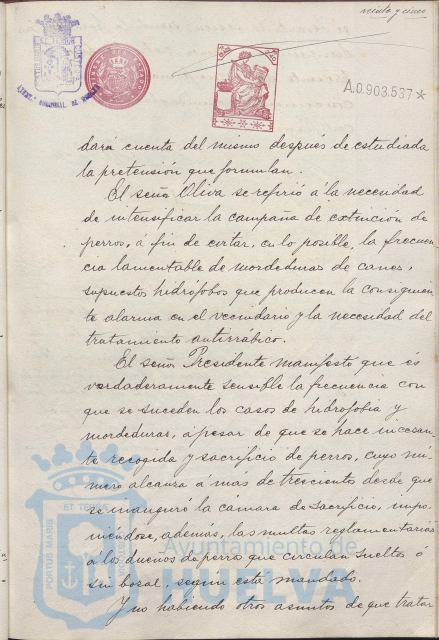 veinte y cinco
A.0.903.537*
dará cuenta del mismo después de estudiada
la pretensión que formulan.
El señor Oliva se refirió á la necesidad
de intensificar la campaña de extinción de
perros, á fin de cortar, en lo posible, la frecuen
cia lamentable de mordeduras de canes,
supuestos hidrófobos que producen la consiguien
te alarma en el vecindario y la necesidad del
tratamiento antirrábico.
El señor Presidente manifestó que es
verdaderamente sensible la frecuencia con
que se suceden los casos de hidrofobia y
mordeduras, á pesar de que se hace incesan
te recogida y sacrificio de perros, cuyo nú-
mero alcanza a más de trescientos desde que
se inauguró la cámara de sacrificio, impo-
niéndose, además, las multas reglamentarias
á los dueños de perros que circulan sueltos ó
sin bozal, según está mandado.
Y no habiendo otros asuntos de que tratar
PORTUS MARIS ET TERRAE
Ayuntamiento de
HUELVA